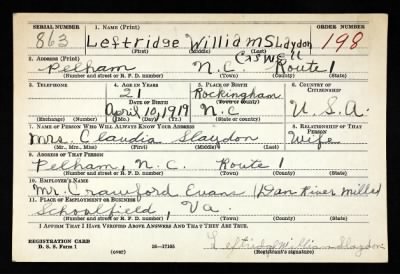 SERIAL NUMBER 1. NAME (Print) ORDER NUMBER
863 Leftridge William Slaydon 198
(First) (Middle) (Last)
2. ADDRESS (Print) Caswell
Pelham N.C. Route 1
(Number and street or R. F. D. number) (Town) (County) (State)
3. TELEPHONE 4. AGE IN YEARS 5. PLACE OF BIRTH 6. COUNTRY OF CITIZENSHIP
21 Rockingham
DATE OF BIRTH (Town or County)
April 10, 1919 N.C U.S.A.
(Exchange) (Number) (Mo.) (Day) (Yr.) (State or country)
7. NAME OF PERSON WHO WILL ALWAYS KNOW YOUR ADDRESS 8. RELATIONSHIP OF THAT PERSON
Mrs. Claudia Slaydon Wife
(Mr., Mrs., Miss) (First) (Middle) (Last)
9. ADDRESS OF THAT PERSON
Pelham, N.C. Route 1
(Number and street or R. F. D. number) (Town) (County) (State)
10. EMPLOYER'S NAME
Mr. Crawford Evans (Dan River Mills)
11. PLACE OF EMPLOYMENT OR BUSINESS
Schoolfield, Va.
(Number and street or R. F. D. number) (Town) (County) (State)
I AFFIRM THAT I HAVE VERIFIED ABOVE ANSWERS AND THAT THEY ARE TRUE.
REGISTRATION CARD
D. S. S. Form 1 (over) 16—17105 Leftridge William Slaydon
(Registrant's signature)